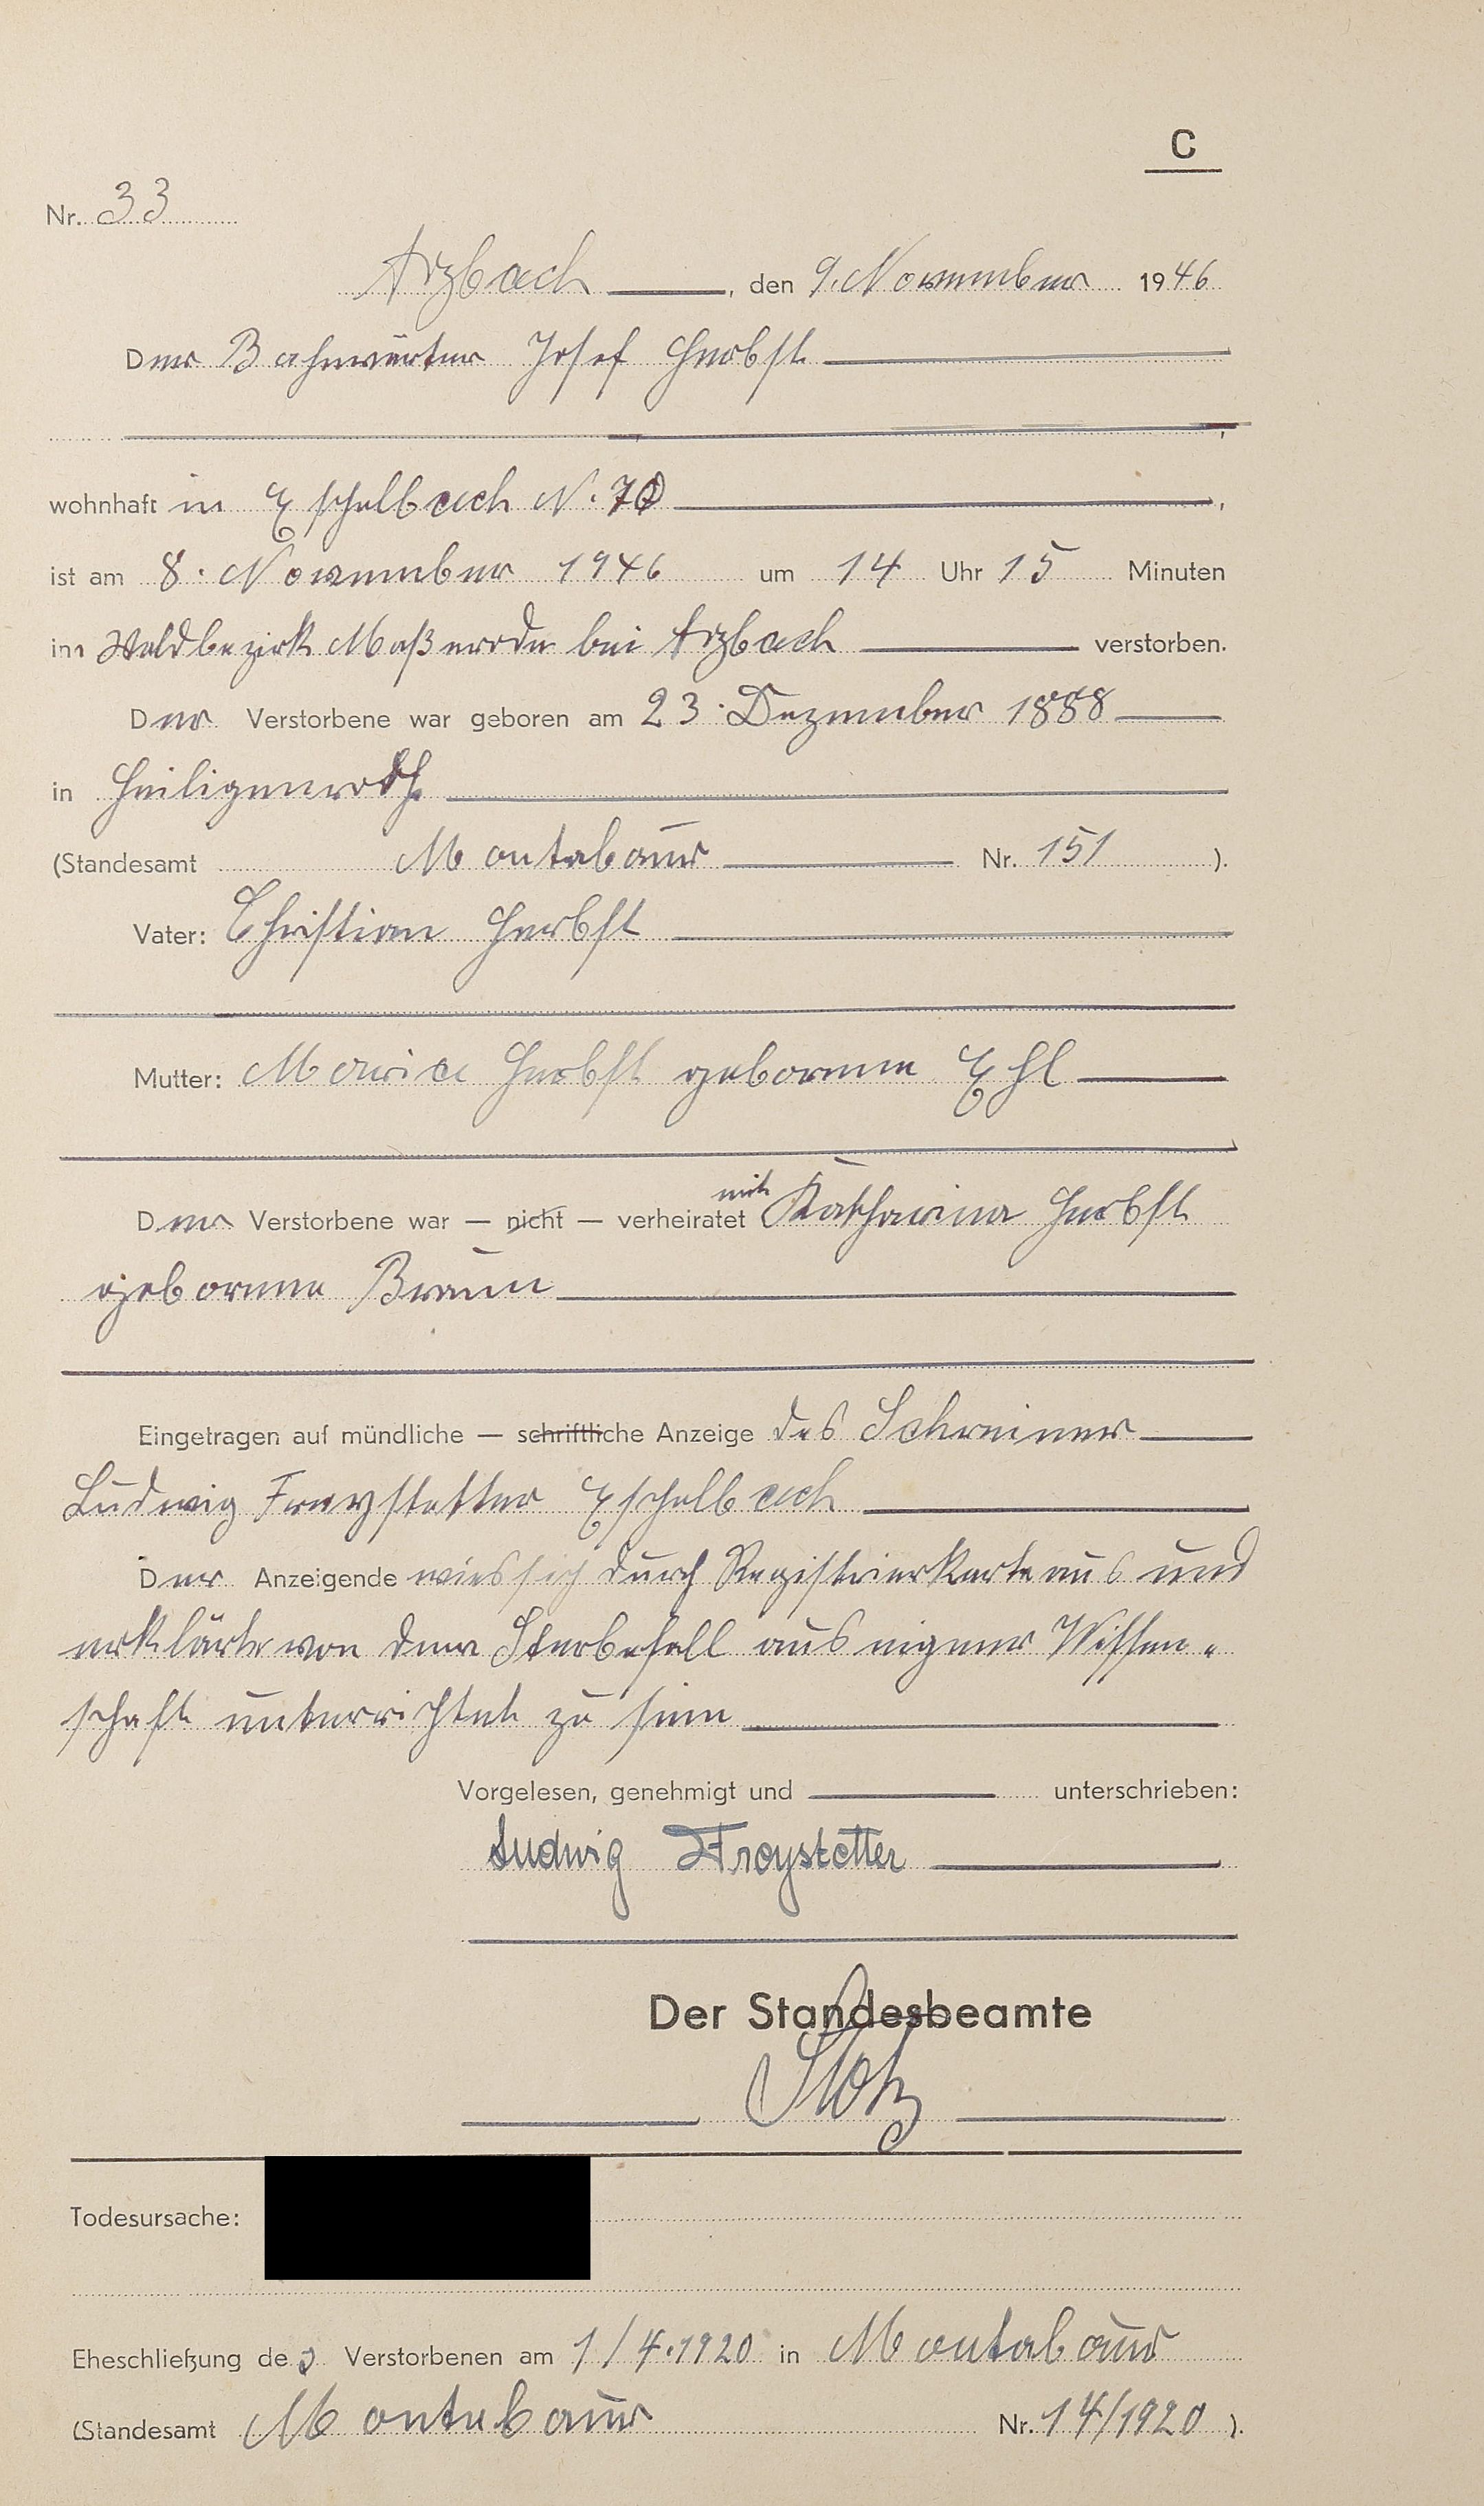 C
Nr. 33
Arzbach, den 9. November 1946
Der Bahnwärter Josef Herbst
wohnhaft in Eschelbach N. 70
ist am 8. November 1946 um 14 Uhr 15 Minuten
im Waldbezirk Maßerode bei Arzbach verstorben.
Der Verstorbene war geboren am 23. Dezember 1888
in Heiligenroth
(Standesamt Montabaur Nr. 151 ).
Vater: Christian Herbst
Mutter: Maria Herbst geborene Ehl
Der Verstorbene war — nicht — verheiratet mit Katharina Herbst
geborene Braun
Eingetragen auf mündliche — schriftliche Anzeige des Schreiner
Ludwig Freystetter Eschelbach
Der Anzeigende wies sich durch Registrierkarte aus und
erklärte von dem Sterbefall aus eigener Wissen-
schaft unterrichtet zu sein
Vorgelesen, genehmigt und unterschrieben:
Ludwig Freystetter
Der Standesbeamte
Todesursache:
Eheschließung des Verstorbenen am 1/4.1920 in Montabaur
(Standesamt Montabaur Nr. 14/1920 ).